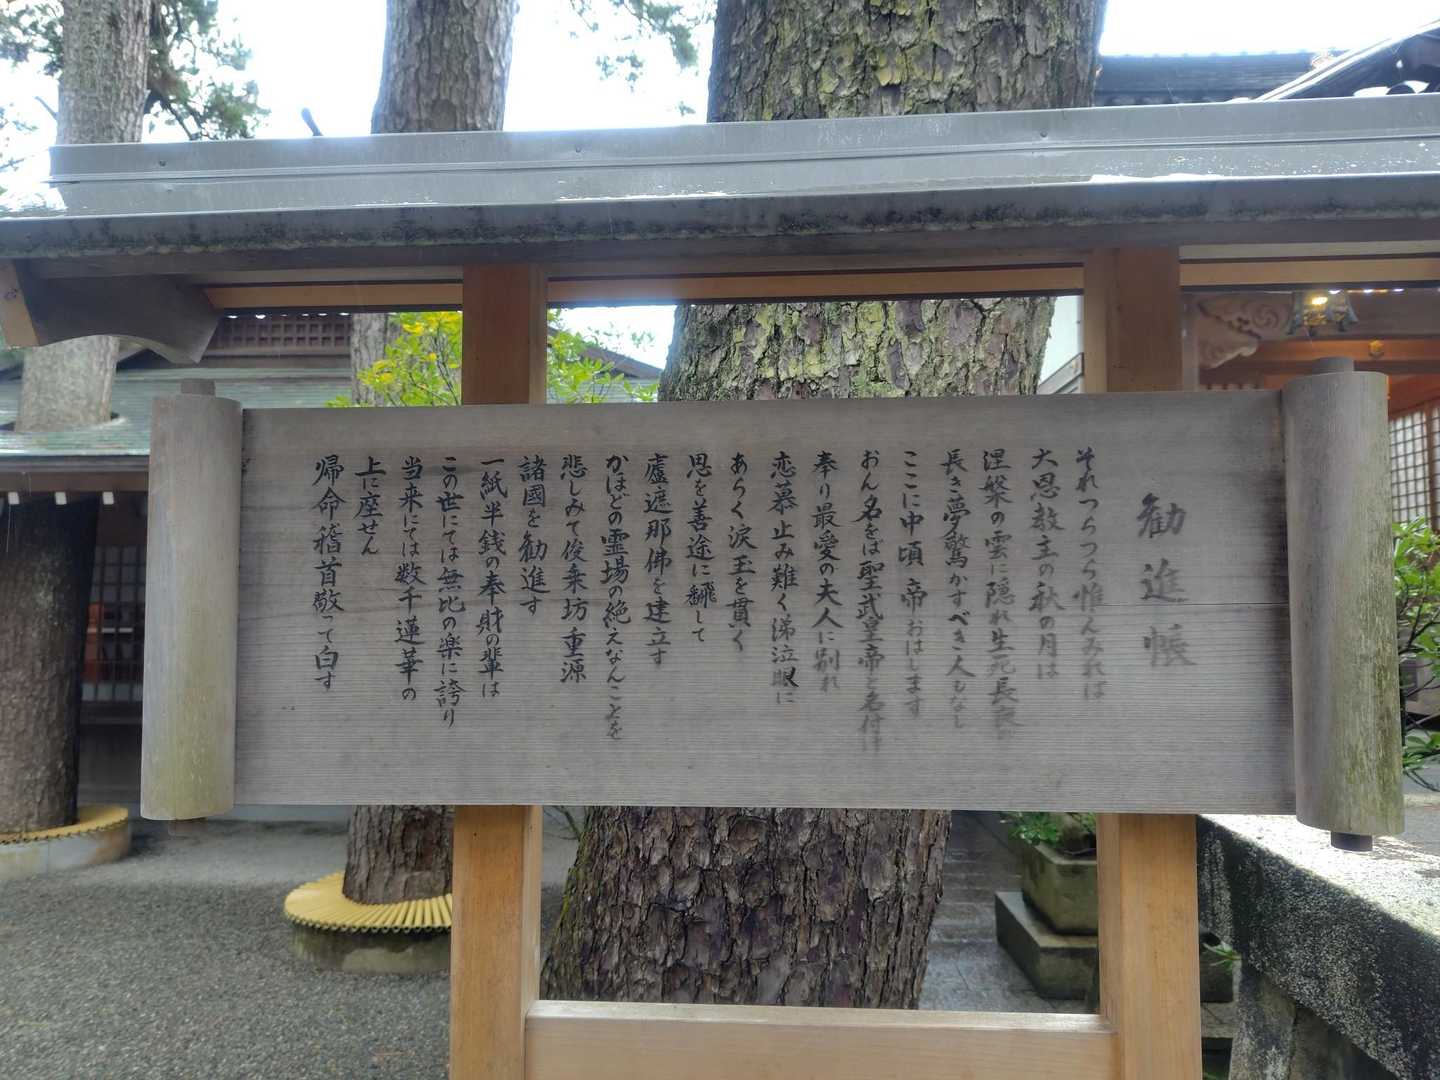 勧進帳
それつらつら惟んみれば
大恩教主の秋の月は
涅槃の雲に隠れ生死長夜の
長き夢驚かすべき人もなし
ここに中頃帝おはします
おん名をば聖武皇帝と名付け
奉り最愛の夫人に別れ
恋慕止み難く涕泣眼に
あらく涙玉を貫く
思を善途に飜して
盧遮那佛を建立す
かほどの霊場の絶えなんことを
悲しみて俊乗坊重源
諸國を勧進す
一紙半銭の奉財の輩は
この世にては無比の楽に誇り
当来にては数千蓮華の
上に座せん
帰命稽首敬って白す